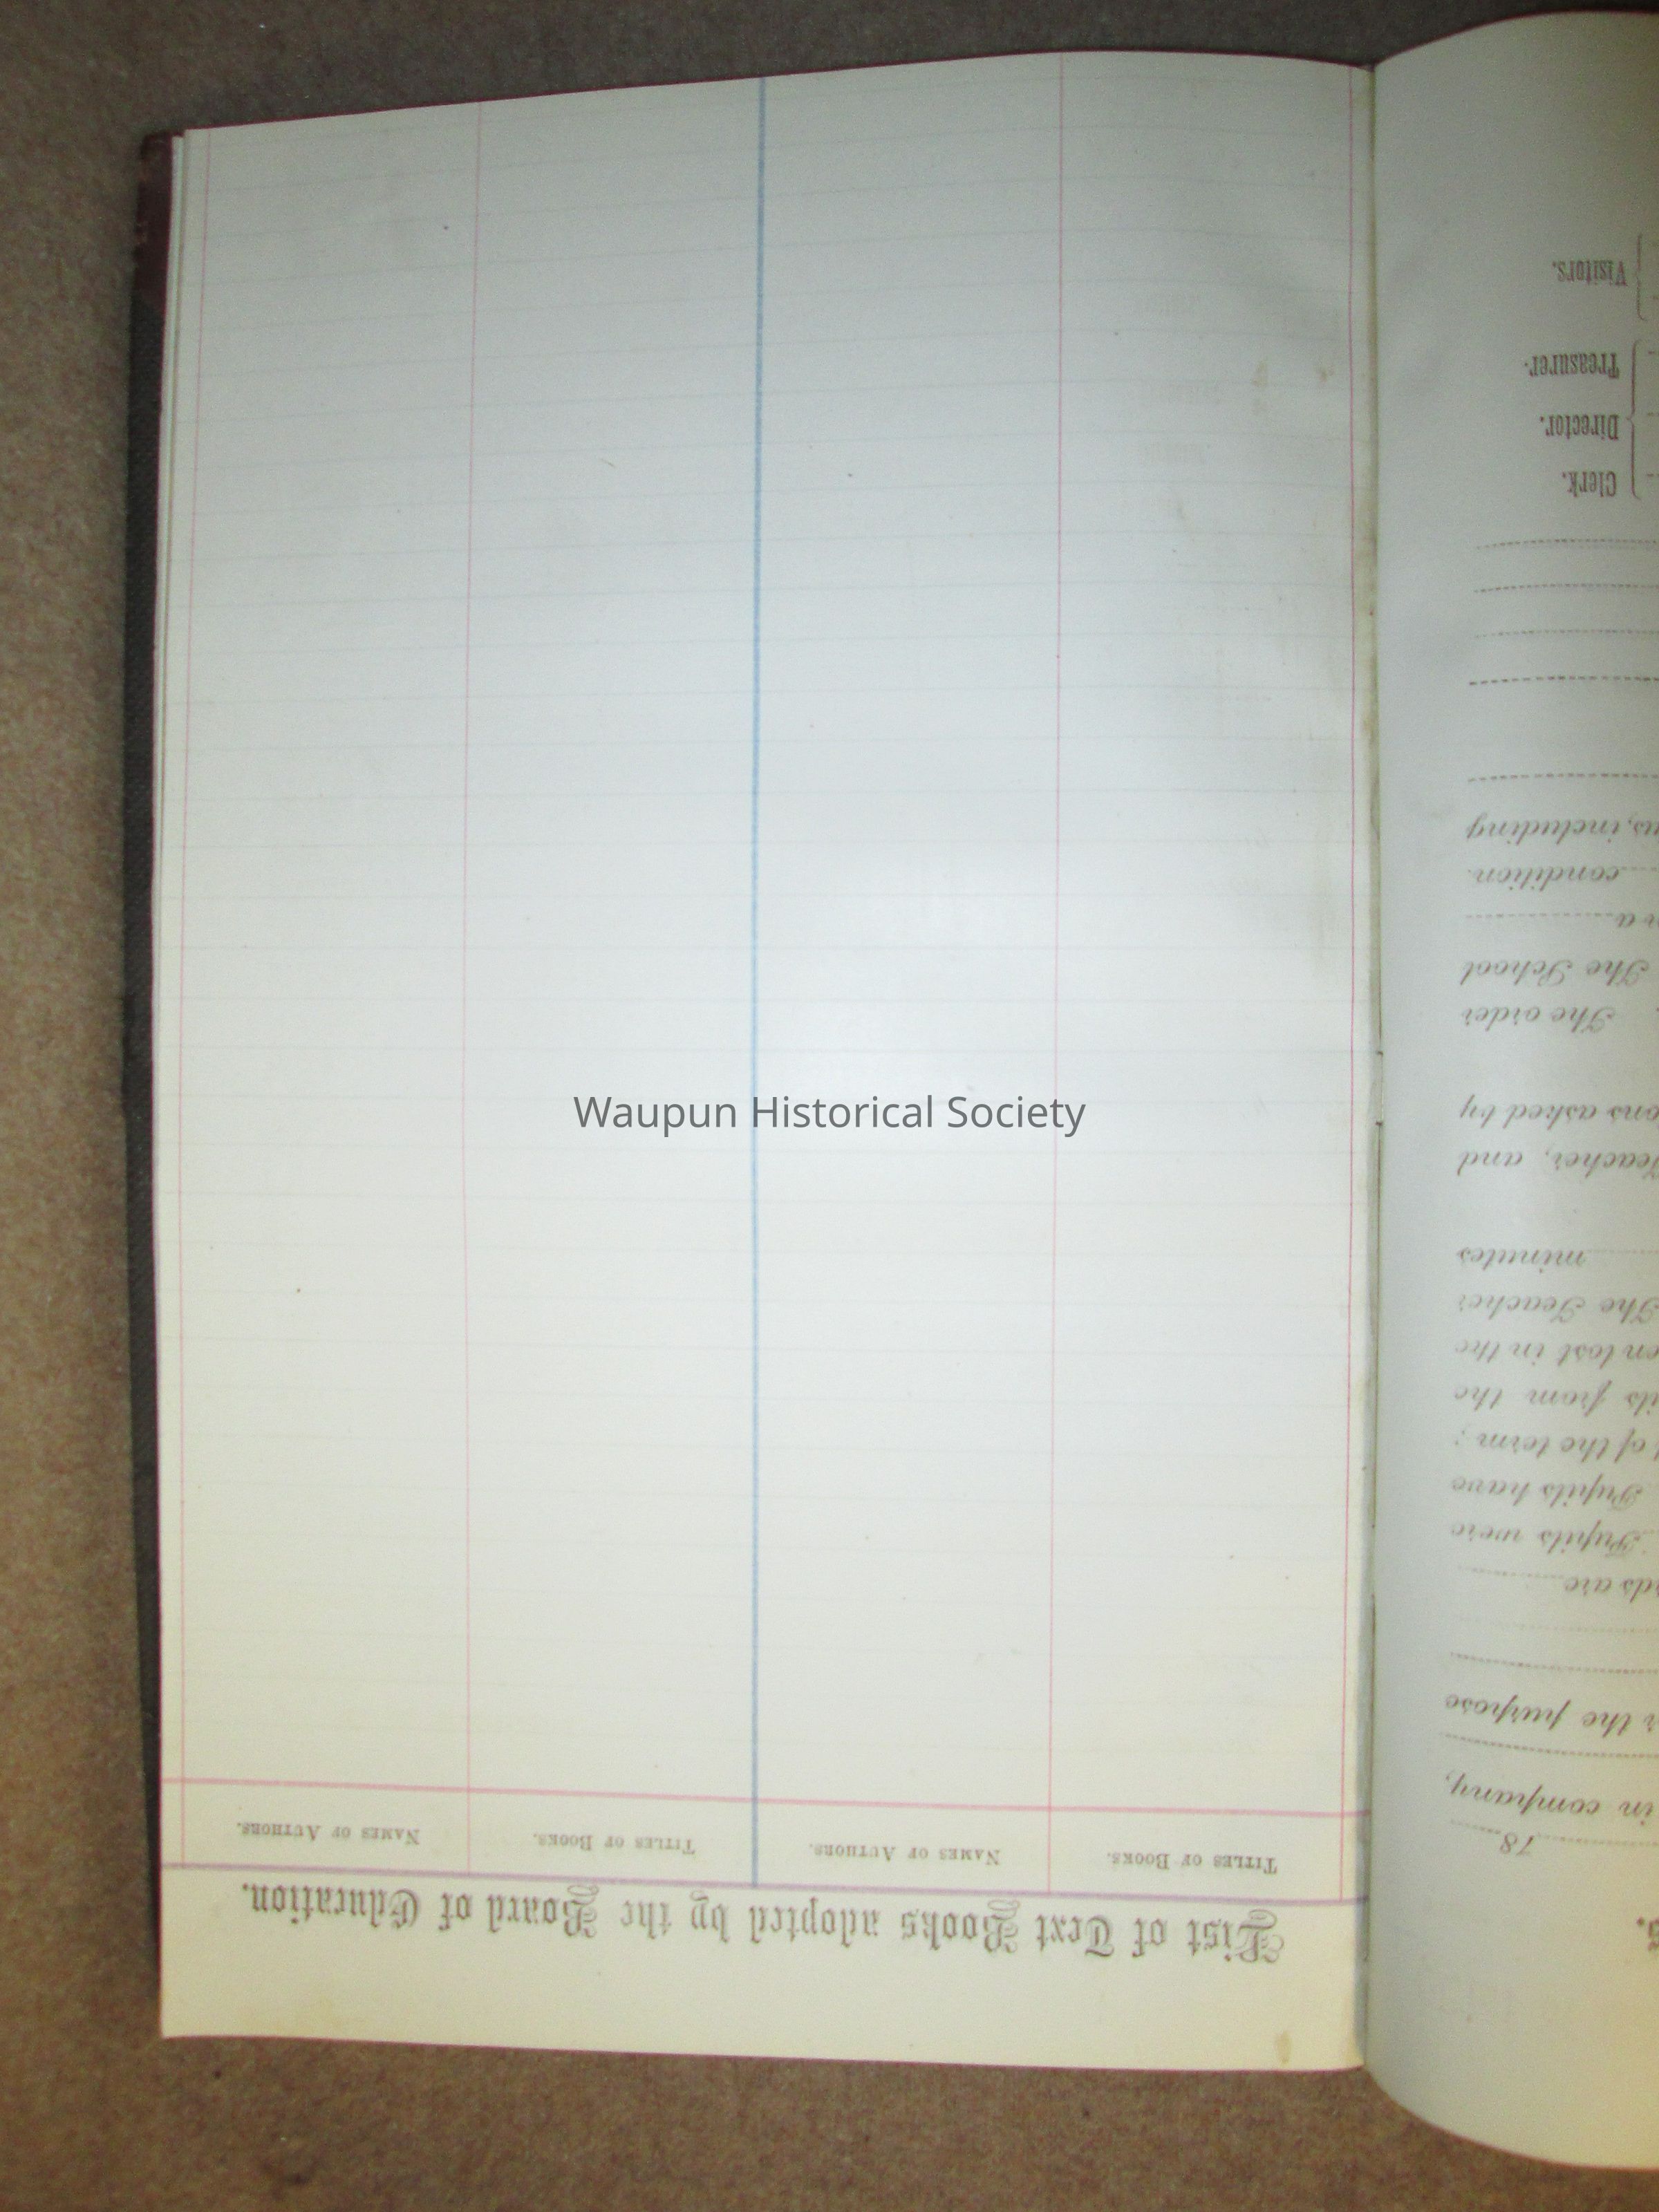 List of Text Books adopted by the Board of Education.
Titles of Books. Names of Authors. Titles of Books. Names of Authors.
18
in company,
the purpose
are
Pupils were
Pupils have
of the term;
from the
lost in the
The Teacher
minutes
Teacher, and
asked by
The order
The School
a
condition
including
Clerk.
Director.
Treasurer.
Visitors.
Waupun Historical Society